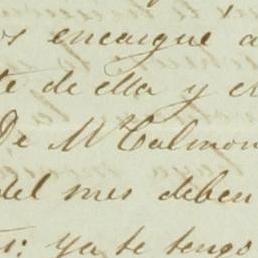 os encargué a
te de ella y el
De Mr Calmon
del mes deben
ts: ya te tengo